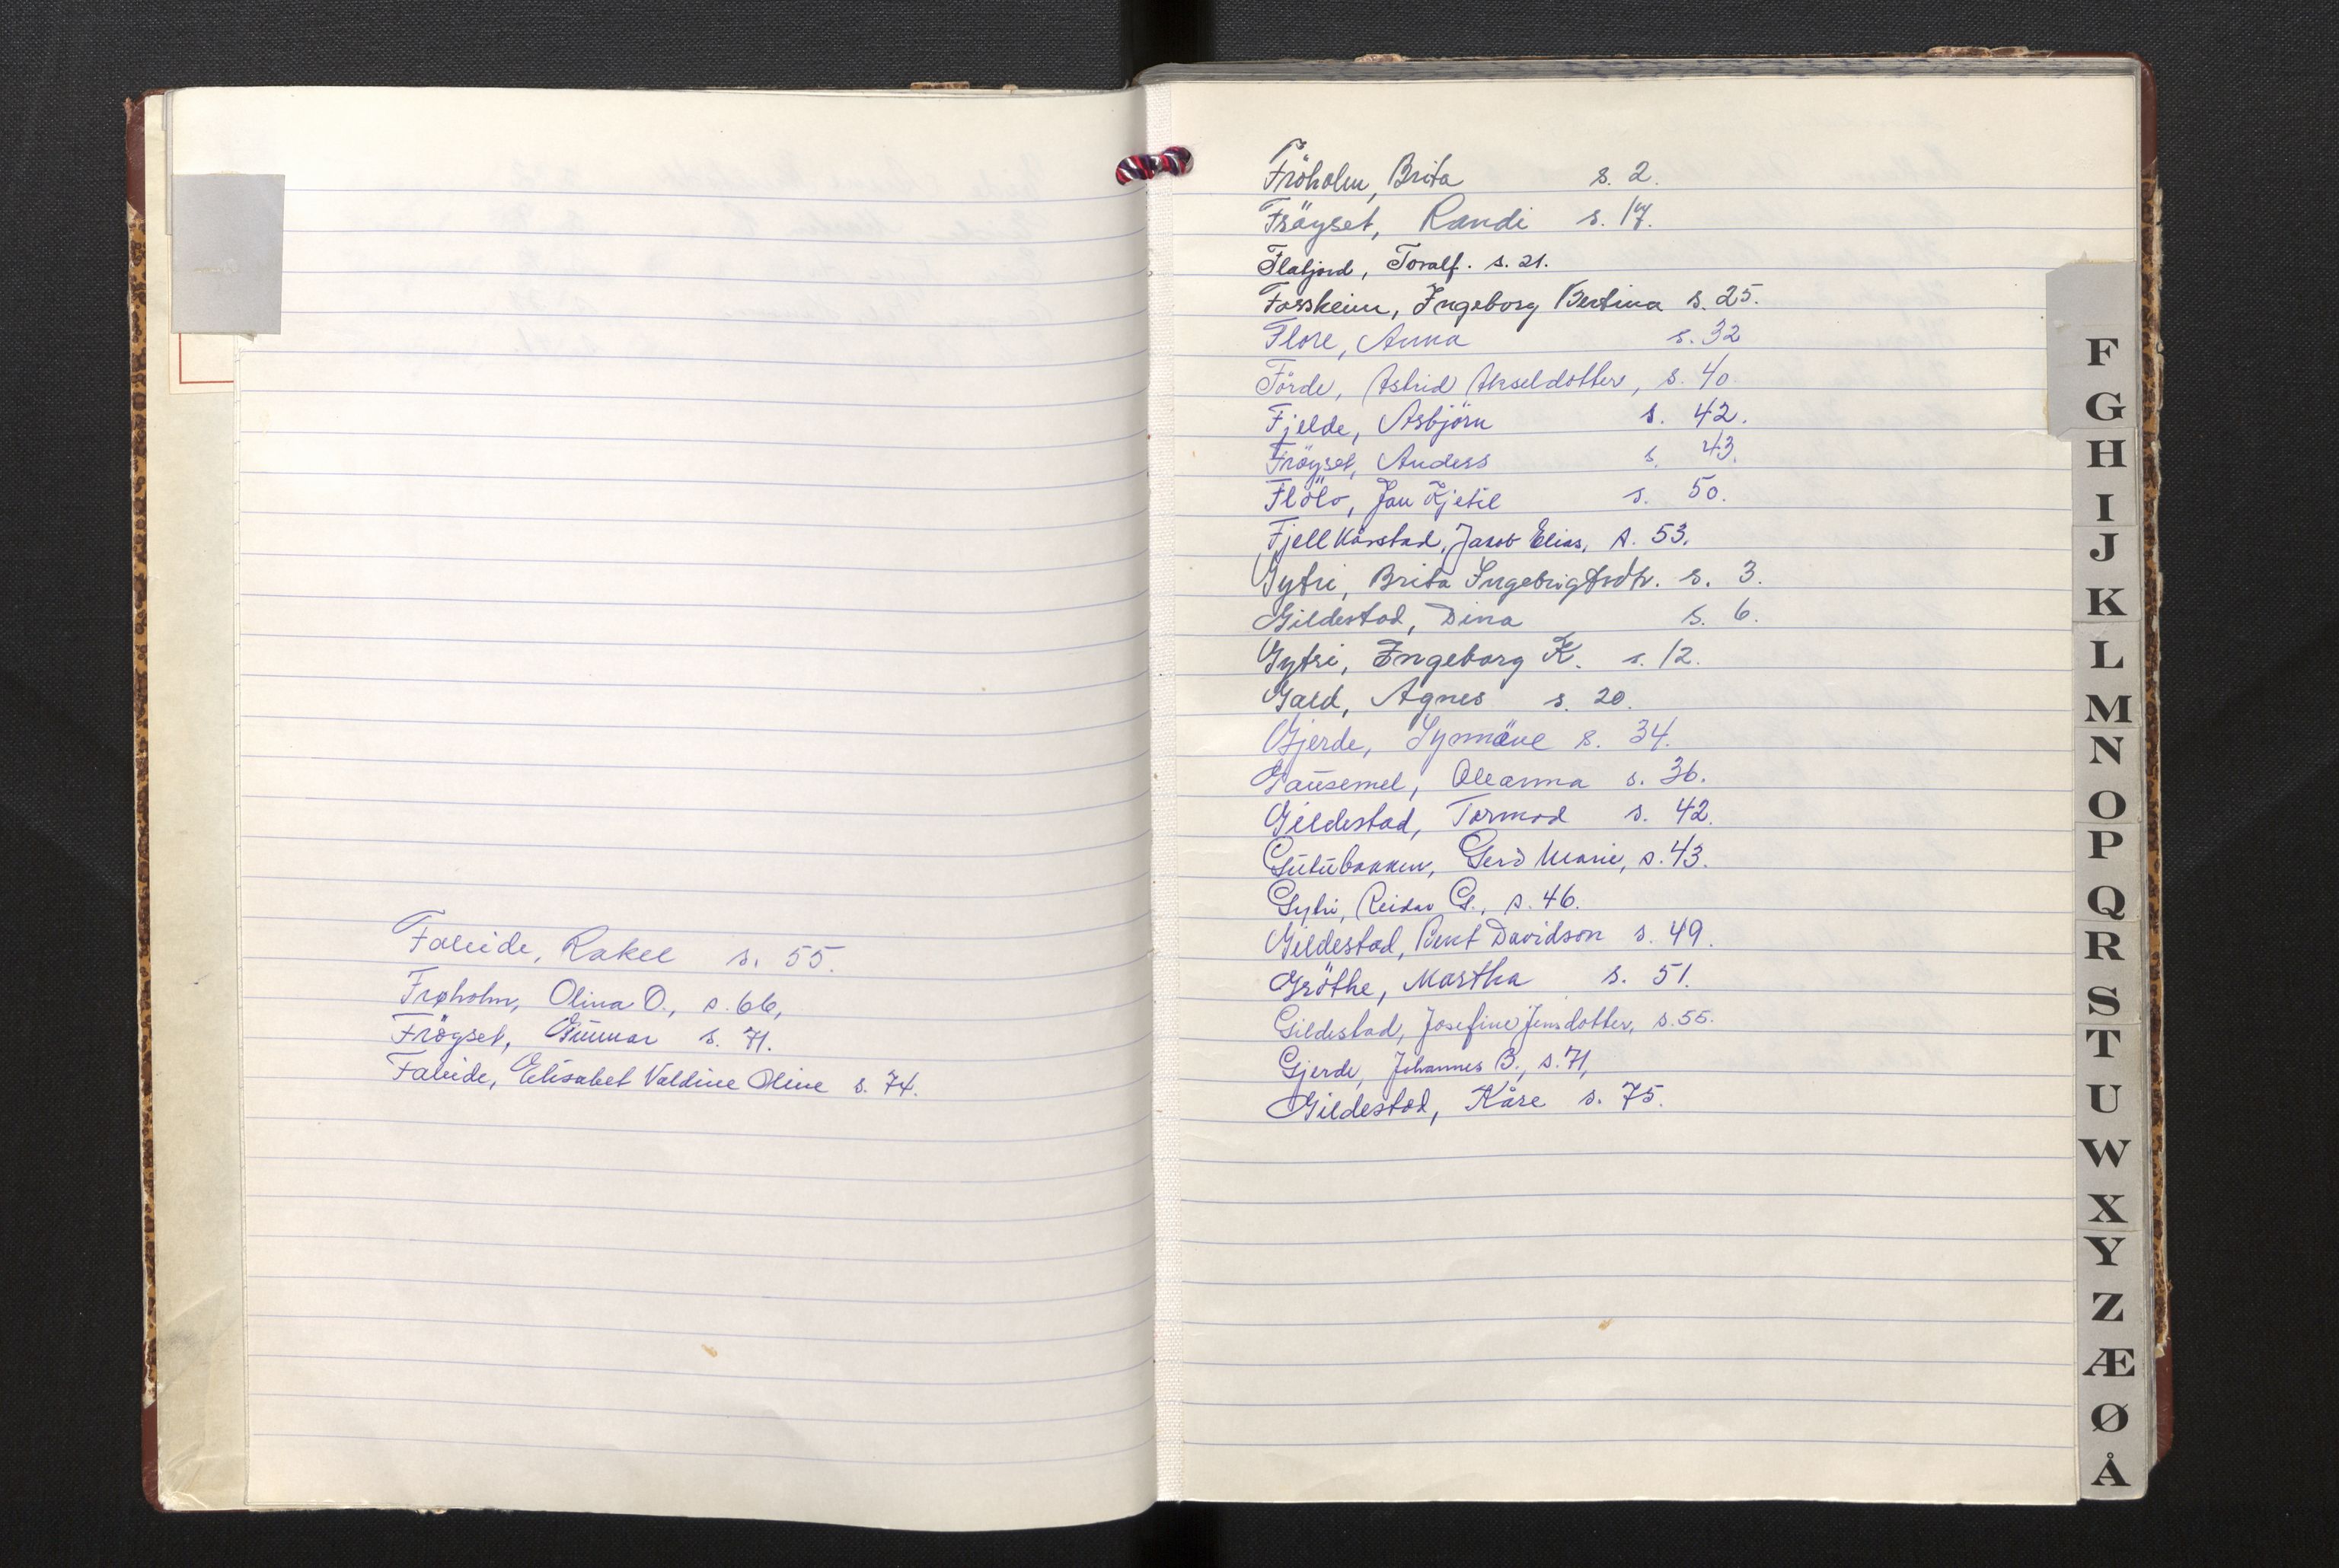 Faleide, Rakel s. 55.
Frøholm, Olina O., s. 66,
Fröyset, Gunnar s. 71.
Faleide, Elisabet Valdine Oline s. 74.
Fröholm, Brita s. 2.
Fröyset, Randi s. 17.
Flatjord, Toralf. s. 21.
Fossheim, Ingeborg Bertina s. 25.
Flore, Anna s. 32
Förde, Astrid Akseldotter, s. 40
Fjelde, Asbjörn s. 42.
Fröyset, Anders s. 43.
Flölo, Jan Kjetil s. 50.
Fjell Kårstad, Jakob Elias, s. 53.
Gytri, Brita Ingebrigtsdtr. s. 3.
Gildestad, Dina s. 6.
Gytri, Ingeborg K. s. 12.
Gald, Agnes s. 20.
Gjerde, Synnöve s. 34.
Gausemel, Oleanna s. 36.
Gildestad, Tormod s. 42.
Gutubakken, Gerd Marie, s. 43.
Gytri, Reidar G., s. 46.
Gildestad, Bent Davidson s. 49.
Gröthe, Martha s. 51.
Gildestad, Josefine Jensdotter, s. 55.
Gjerde, Johannes B., s. 71,
Gildestad, Kåre s. 75.
F
G
H
I
J
K
L
M
N
O
P
Q
R
S
T
U
W
X
Y
Z
Æ
Ø
Å